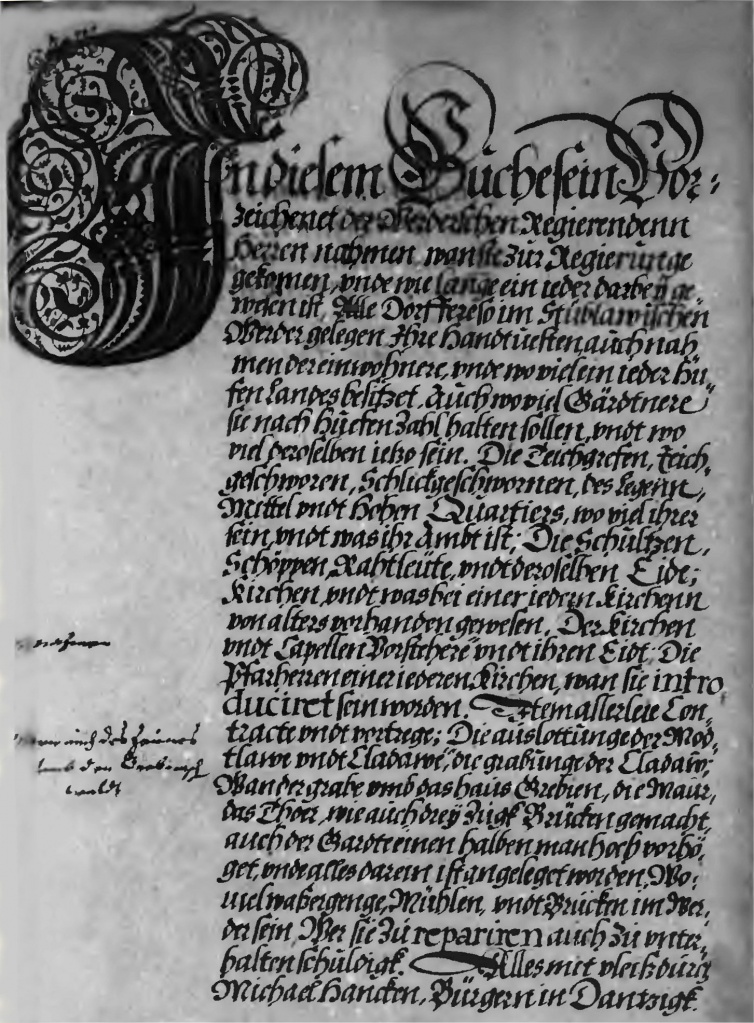 In diesem Buche sein Vor-
zeichenet der Werderschen Regierendenn
Herren nahmen, wan sie zur Regierunge
gekomen, unde wie lange ein ieder darbey ge-
wesen ist, Alle Dörffere so im Stüblawischen
Werder gelegen Ihre Handtuesten auch nah
men der einwohnere, unde wo viel ein ieder Hü-
fen Landes besitzet, Auch wo viel Gärdtnere
sie nach Huefen Zahl halten sollen, undt wo
viel deroselben ietzo sein. Die Teichgrefen, Teich-
geschworen, Schlickgeschwornen, des Legenn,
Mittel undt Hohen Quartiers, wo viel ihrer
sein, undt was ihr Ambt ist; Die Schultzen,
Schöppen, Rahtleute, undt deroselben Eidt;
Kirchen, undt was bei einer iedern Kirchenn
von alters verhanden gewesen. Der Kirchen
undt Capellen Vorstehere undt ihren Eidt; Die
Pfarherren einer iederen Kirchen, wan sie intro
duciret sein worden. Item allerleie Con-
tracte undt vortrege; Die auslottunge der Mod-
tlawe undt Cladawe, die grabunge der Cladaw,
Wandergrabe umb das haus Grebien, die Maur,
das Thoer, wie auch drey Zugk Brücken gemacht,
auch der Gardte einen halben man hoch vorhö-
get, unde alles darein ist angeleget worden, Wo-
viel waßergenge, Mühlen, undt Brücken im Wer-
der sein, Wer sie zu repariren auch zu unter-
halten schuldigk. Alles met vleis durch
Michael Hancken, Bürgern in Dantzigk.
auch des
den
waldt